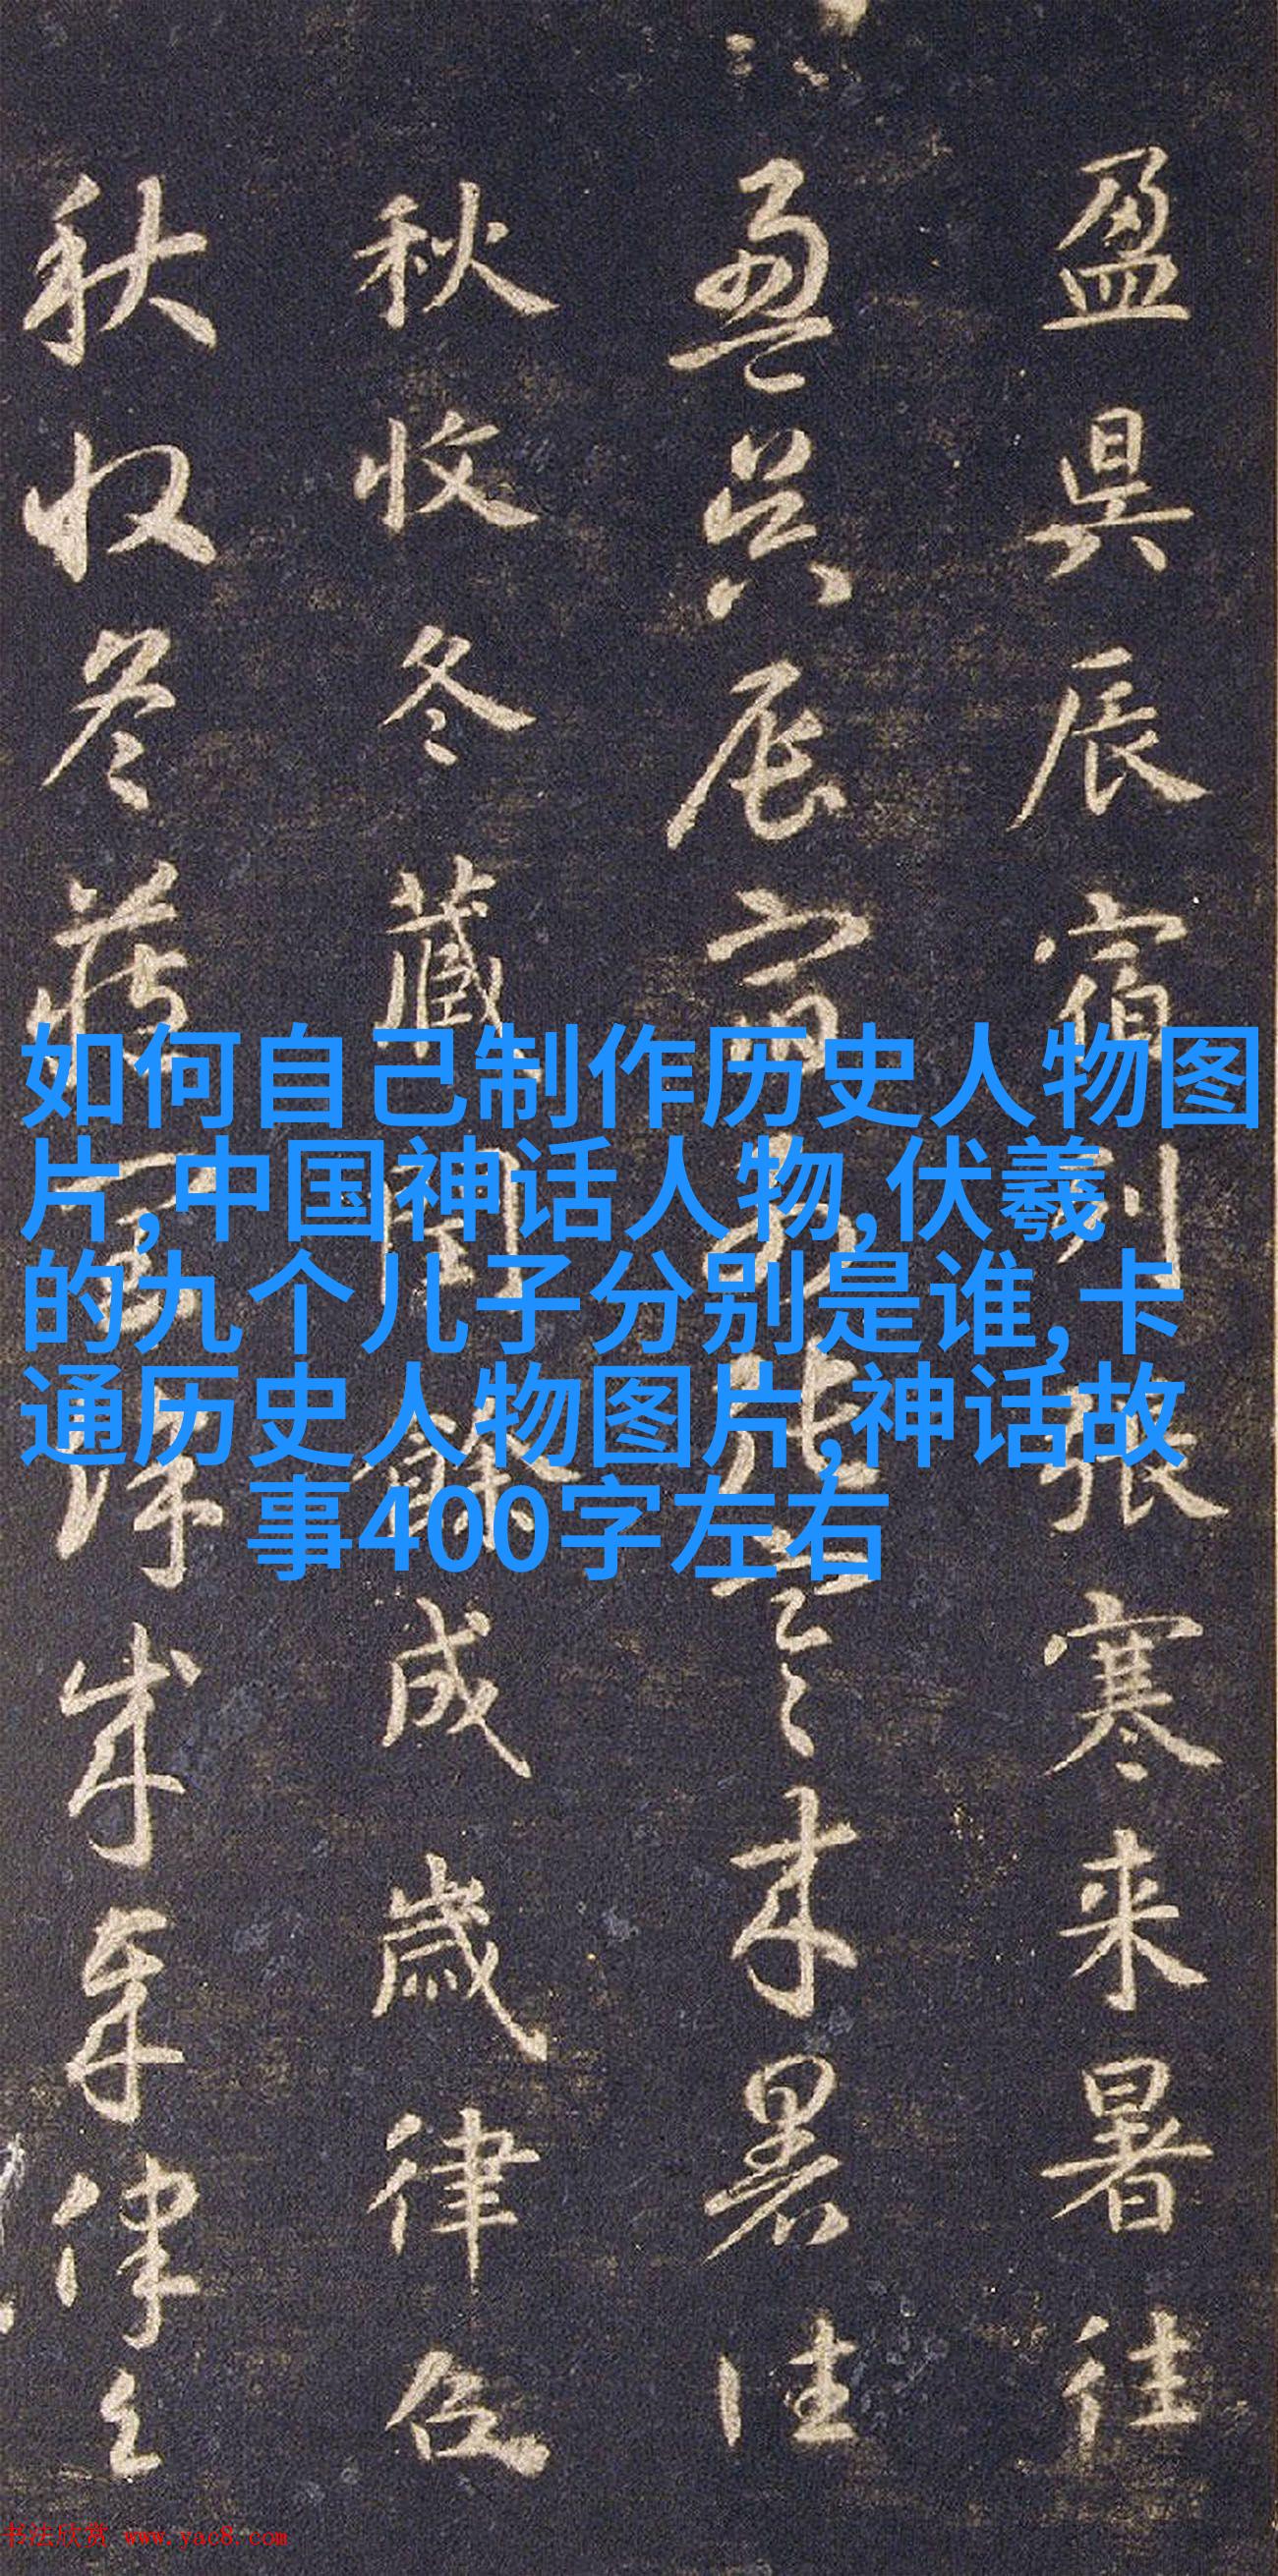 盈昃辰宿列張寒来暑往
盈昃辰宿列張寒来暑往
秋收冬藏閏餘成歲律吕
秋收冬藏閏餘成歲律吕
如何自己制作历史人物图
片,中国神话人物,伏羲
的九个儿子分别是谁,卡
通历史人物图片,神话故
事400字左右
书法欣赏 www.yac8.com